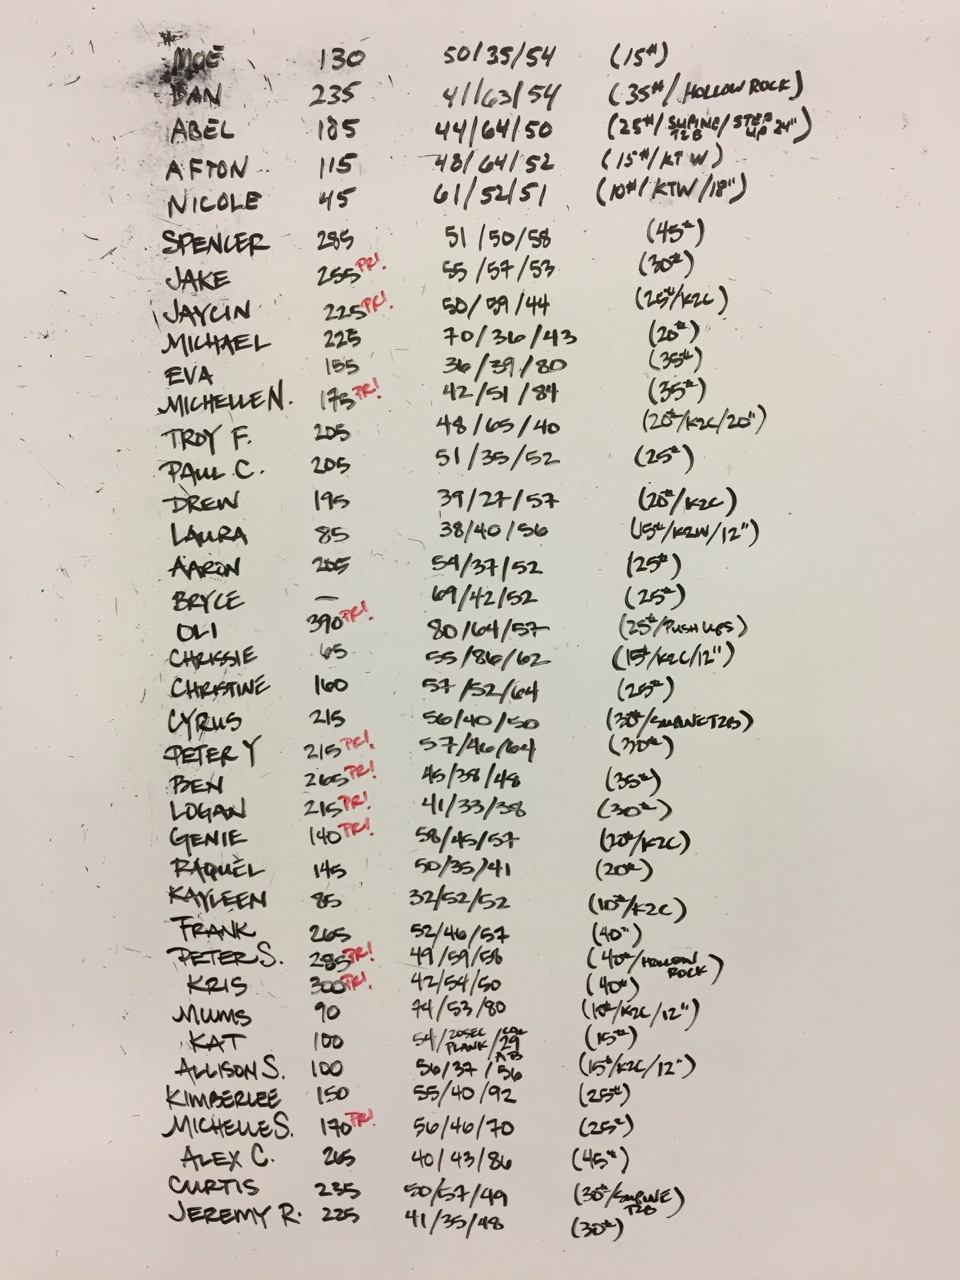 MOE 130 50/35/54 (15#)
DAN 235 41/63/54 (35#/HOLLOW ROCK)
ABEL 185 44/64/50 (25#/SUPINE T2B/STEP UP 24")
AFTON 115 48/64/52 (15#/KTW)
NICOLE 45 61/52/51 (10#/KTW/18")
SPENCER 285 51/50/58 (45#)
JAKE 255 PR! 55/57/53 (30#)
JAYCIN 225 PR! 50/39/44 (25#/K2C)
MICHAEL 225 70/36/43 (20#)
EVA 155 36/39/80 (35#)
MICHELLE N. 175 PR! 42/51/84 (35#)
TROY F. 205 48/65/40 (20#/K2C/20")
PAUL C. 205 51/35/52 (25#)
DREW 195 39/27/57 (20#/K2C)
LAURA 85 38/40/56 (15#/K2W/12")
AARON 205 54/37/52 (25#)
BRYCE — 69/42/52 (25#)
OLI 390 PR! 80/64/57 (25#/PUSH UPS)
CHRISSIE 65 55/86/62 (15#/K2C/12")
CHRISTINE 160 57/52/64 (25#)
CYRUS 215 56/40/50 (30#/SUPINE T2B)
PETER Y 215 PR! 57/46/64 (30#)
BEN 265 PR! 45/38/48 (35#)
LOGAN 215 PR! 41/33/38 (30#)
GENIE 140 PR! 58/45/57 (20#/K2C)
RAQUEL 145 50/35/41 (20#)
KAYLEEN 85 32/52/52 (10#/K2C)
FRANK 265 52/46/57 (40#)
PETER S. 285 PR! 49/59/56 (40#/HOLLOW ROCK)
KRIS 300 PR! 42/54/50 (40#)
MUMS 90 74/53/80 (10#/K2C/12")
KAT 100 54/20SEC PLANK/CAL 29 AB (15#)
ALLISON S. 100 56/37/56 (15#/K2C/12")
KIMBERLEE 150 55/40/92 (25#)
MICHELLE S. 170 PR! 56/46/70 (25#)
ALEX C. 265 40/43/86 (45#)
CURTIS 235 50/57/49 (30#/SUPINE T2B)
JEREMY R. 225 41/35/48 (30#)